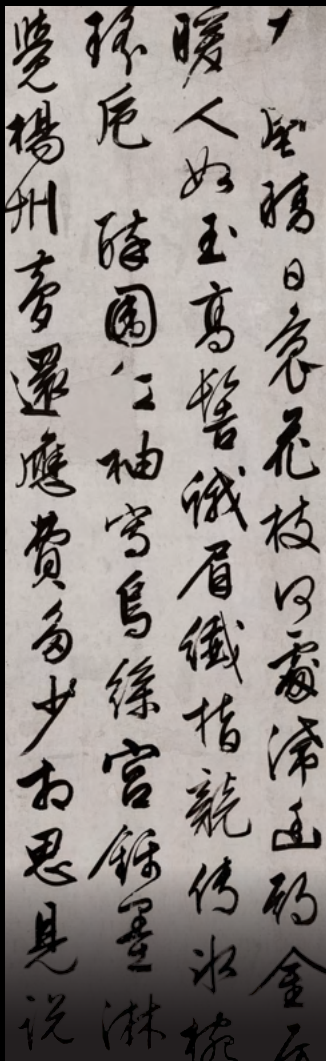 晴日裊花枝何處滯幽期金屋
暖人如玉高髻蛾眉纖指競傳冰椀
瑤卮醉圍紅袖寫烏絲宮錦墨淋
覺楊州夢還應費多少相思見說